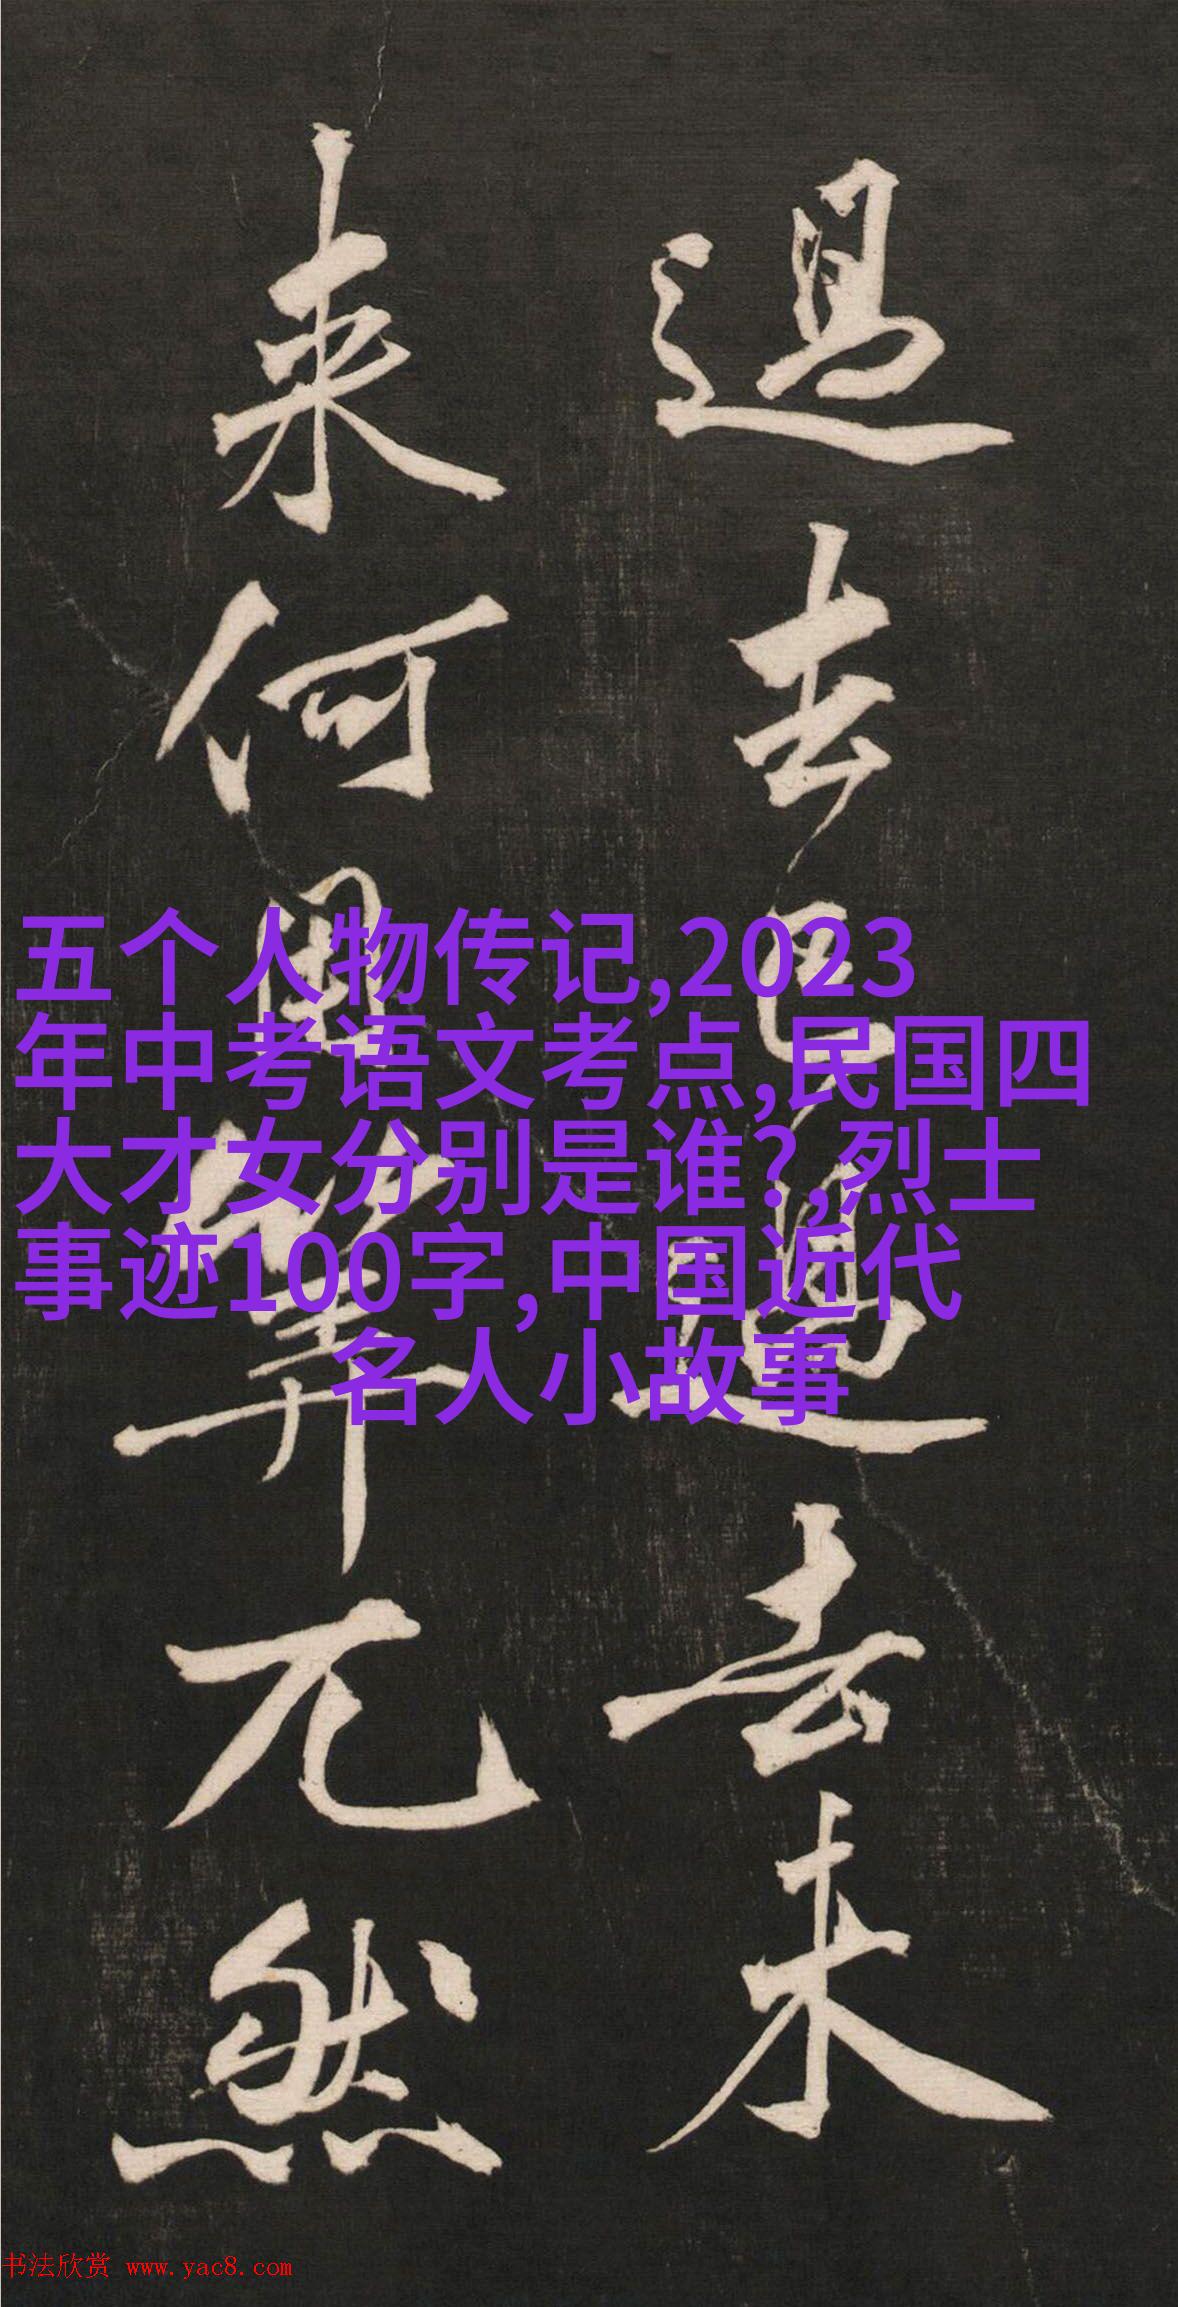 過去已過去未
来何用筭兀然
五个人物传记,2023
年中考语文考点,民国四
大才女分别是谁?,烈士
事迹100字,中国近代
名人小故事
书法欣赏 www.yac8.com